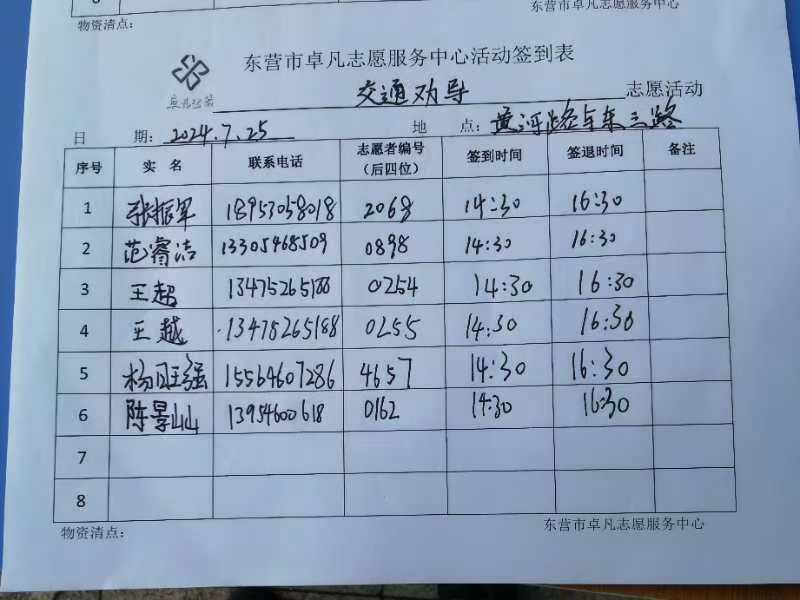 物资清点： 东营市卓凡志愿服务中心
东营市卓凡志愿服务中心活动签到表
交通劝导 志愿活动
日 期：2024.7.25 地 点：黄河路与东三路
序号 实 名 联系电话 志愿者编号（后四位） 签到时间 签退时间 备注
1 张振军 18953058018 2068 14:30 16:30
2 范睿洁 13305468509 0898 14:30 16:30
3 王超 13475265188 0254 14:30 16:30
4 王越 13475265188 0255 14:30 16:30
5 杨旺强 15564607286 4657 14:30 16:30
6 陈景山 13954600618 0162 14:30 16:30
7
8
物资清点： 东营市卓凡志愿服务中心